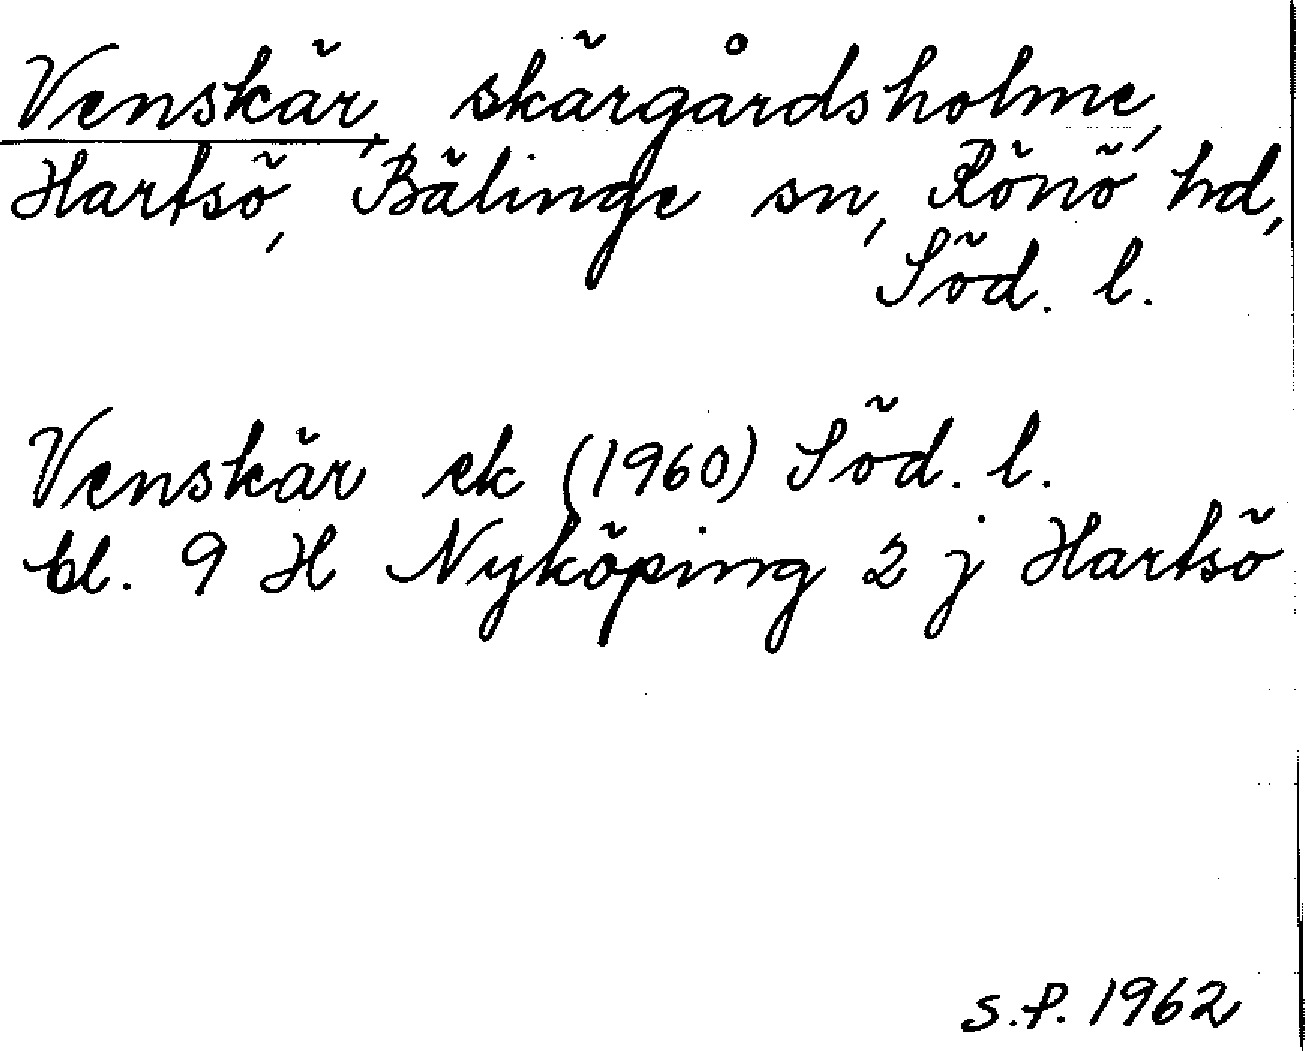 Venskär, skärgårdsholme,
Hartsö, Bälinge sn, Rönö hd,
Söd. l.
Venskär ek (1960) Söd. l.
bl. 9 H Nyköping 2 j Hartsö
S.P. 1962